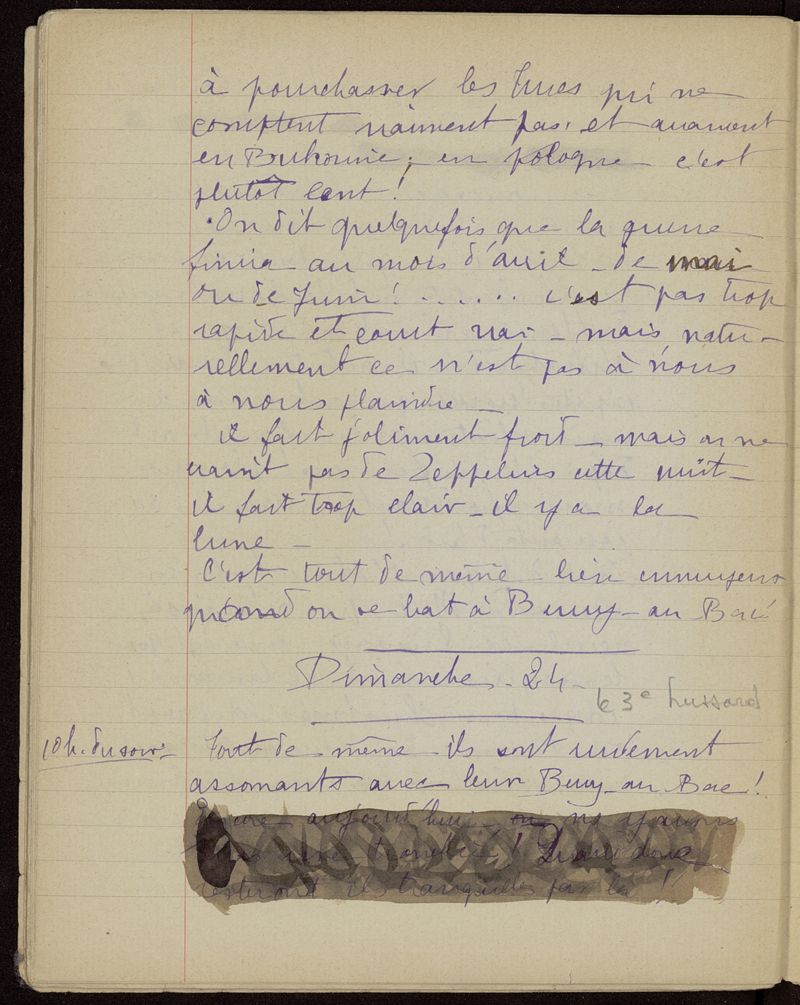 à pourchasser les Turcs qui ne
comptent vraiment pas, et avancent
en Boukovine; en pologne c'est
plutôt lent!
On dit quelquefois que la guerre
finira au mois d'avril - de mai
ou de Juin! ...... c'est pas trop
rapide et court - mais natu-
rellement ce n'est pas à nous
à nous plaindre -
il fait joliment froid - mais on ne
craint pas de Zeppelins cette nuit -
il fait trop clair - il y a la
lune -
C'est tout de même bien ennuyeux
quand on se bat à Berry-au Bac!
Dimanche - 24 -
le 3e hussard
10 h. du soir - Tout de même ils sont rudement
assomants avec leur Berry-au Bac!
Encore aujourd'hui on
une tranchée! Quand donc
resteront ils tranquilles par là!